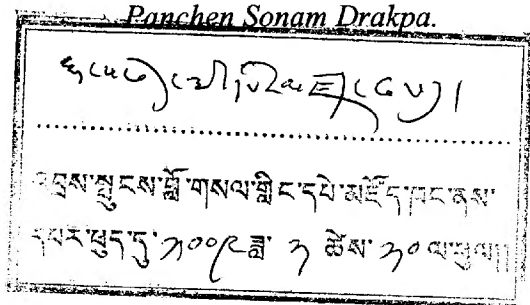 Panchen Sonam Drakpa.
འབྲས་སྤུངས་བློ་གསལ་གླིང་དཔེ་མཛོད་ཁང་ནས་
དཔར་ཕུད་དུ་ ༢༠༠༩ ཟླ་ ༢ ཚེས་ ༢༠ ལ་ཕུལ།།